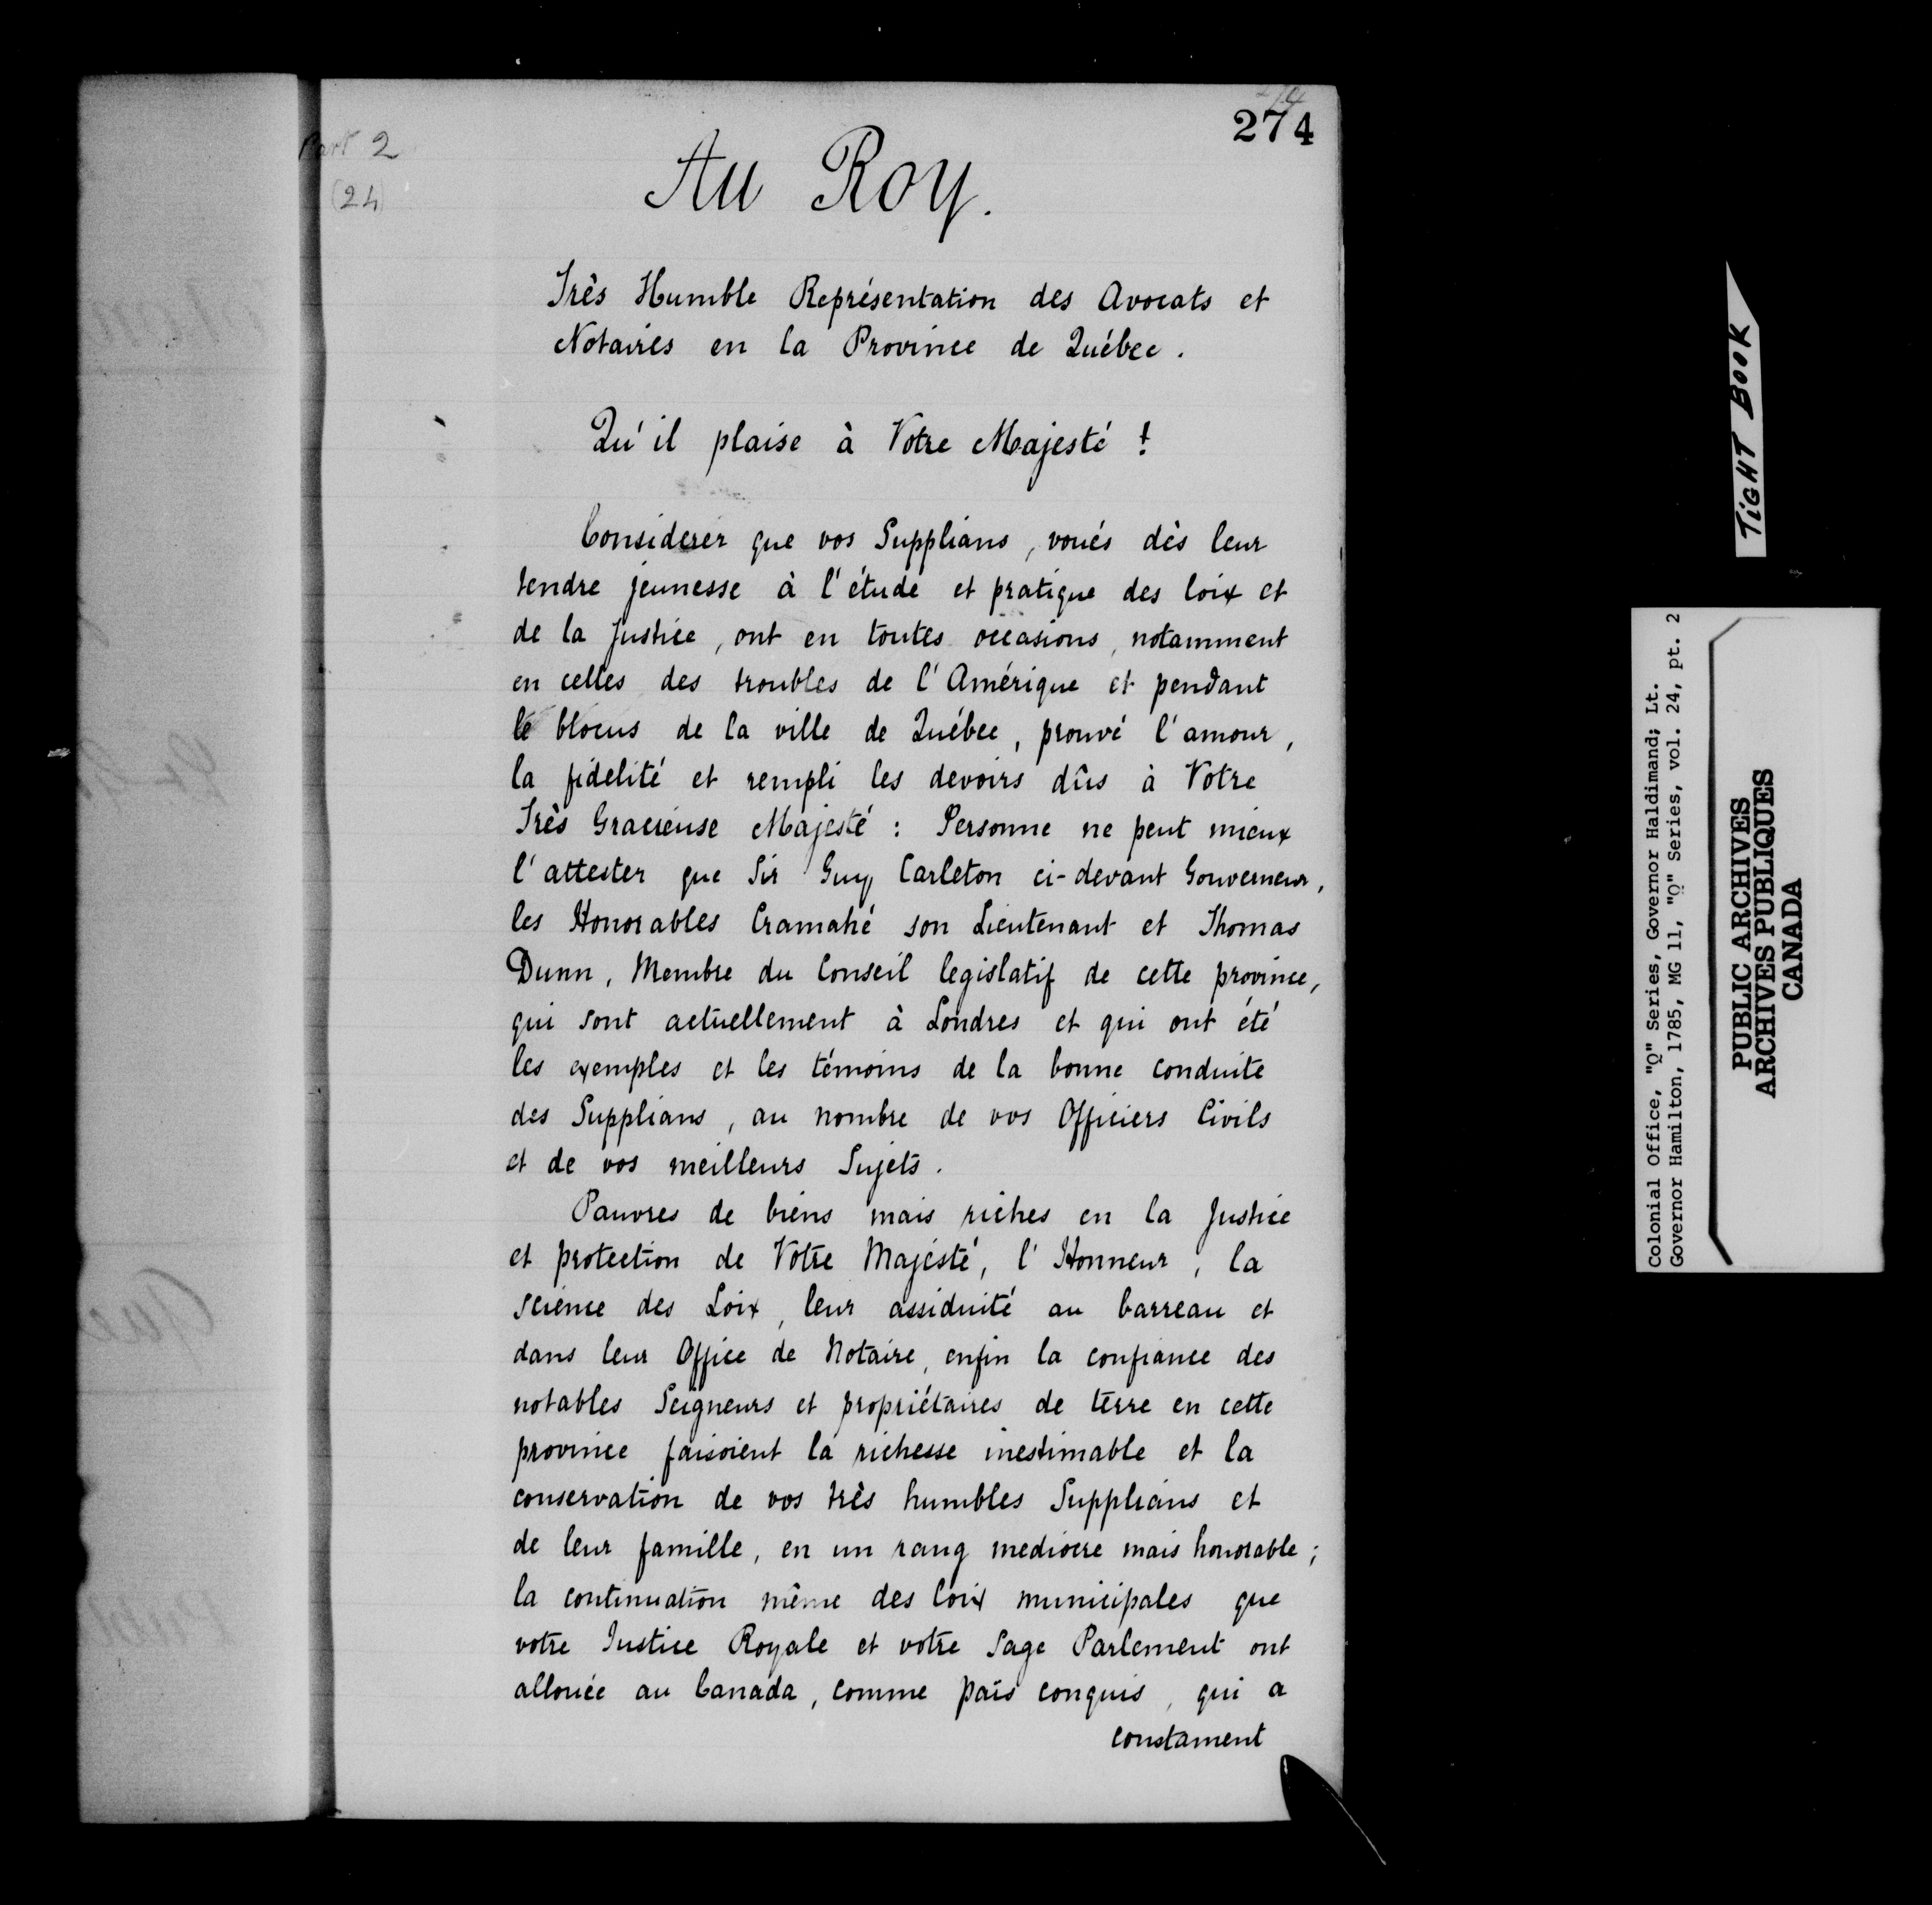 Part 2
(24)
274
274
Au Roy.
Très Humble Représentation des Avocats et
Notaires en la Province de Québec.
Qu'il plaise à Votre Majesté !
Considerer que vos Supplians, voués dès leur
tendre jeunesse à l'étude et pratique des loix et
de la Justice, ont en toutes occasions, notamment
en celles des troubles de l'Amérique et pendant
le blocus de la ville de Québec, prouvé l'amour,
la fidelité et rempli les devoirs dûs à Votre
Très Gracieuse Majesté : Personne ne peut mieux
l'attester que Sir Guy Carleton ci-devant Gouverneur,
les Honorables Cramahé son Lieutenant et Thomas
Dunn, Membre du Conseil legislatif de cette province,
qui sont actuellement à Londres et qui ont été
les exemples et les témoins de la bonne conduite
des Supplians, au nombre de vos Officiers Civils
et de vos meilleurs Sujets.
Pauvres de biens mais riches en la Justice
et protection de Votre Majesté, l'Honneur, la
science des Loix, leur assiduité au barreau et
dans leur Office de Notaire, enfin la confiance des
notables Seigneurs et propriétaires de terre en cette
province faisoient la richesse inestimable et la
conservation de vos très humbles Supplians et
de leur famille, en un rang mediocre mais honorable;
la continuation même des loix municipales que
votre Justice Royale et votre Sage Parlement ont
allouée au Canada, comme païs conquis, qui a
constament
TIGHT BOOK
Colonial Office, "Q" Series, Governor Haldimand; Lt.
Governor Hamilton, 1785, MG 11, "Q" Series, vol. 24, pt. 2
PUBLIC ARCHIVES
ARCHIVES PUBLIQUES
CANADA